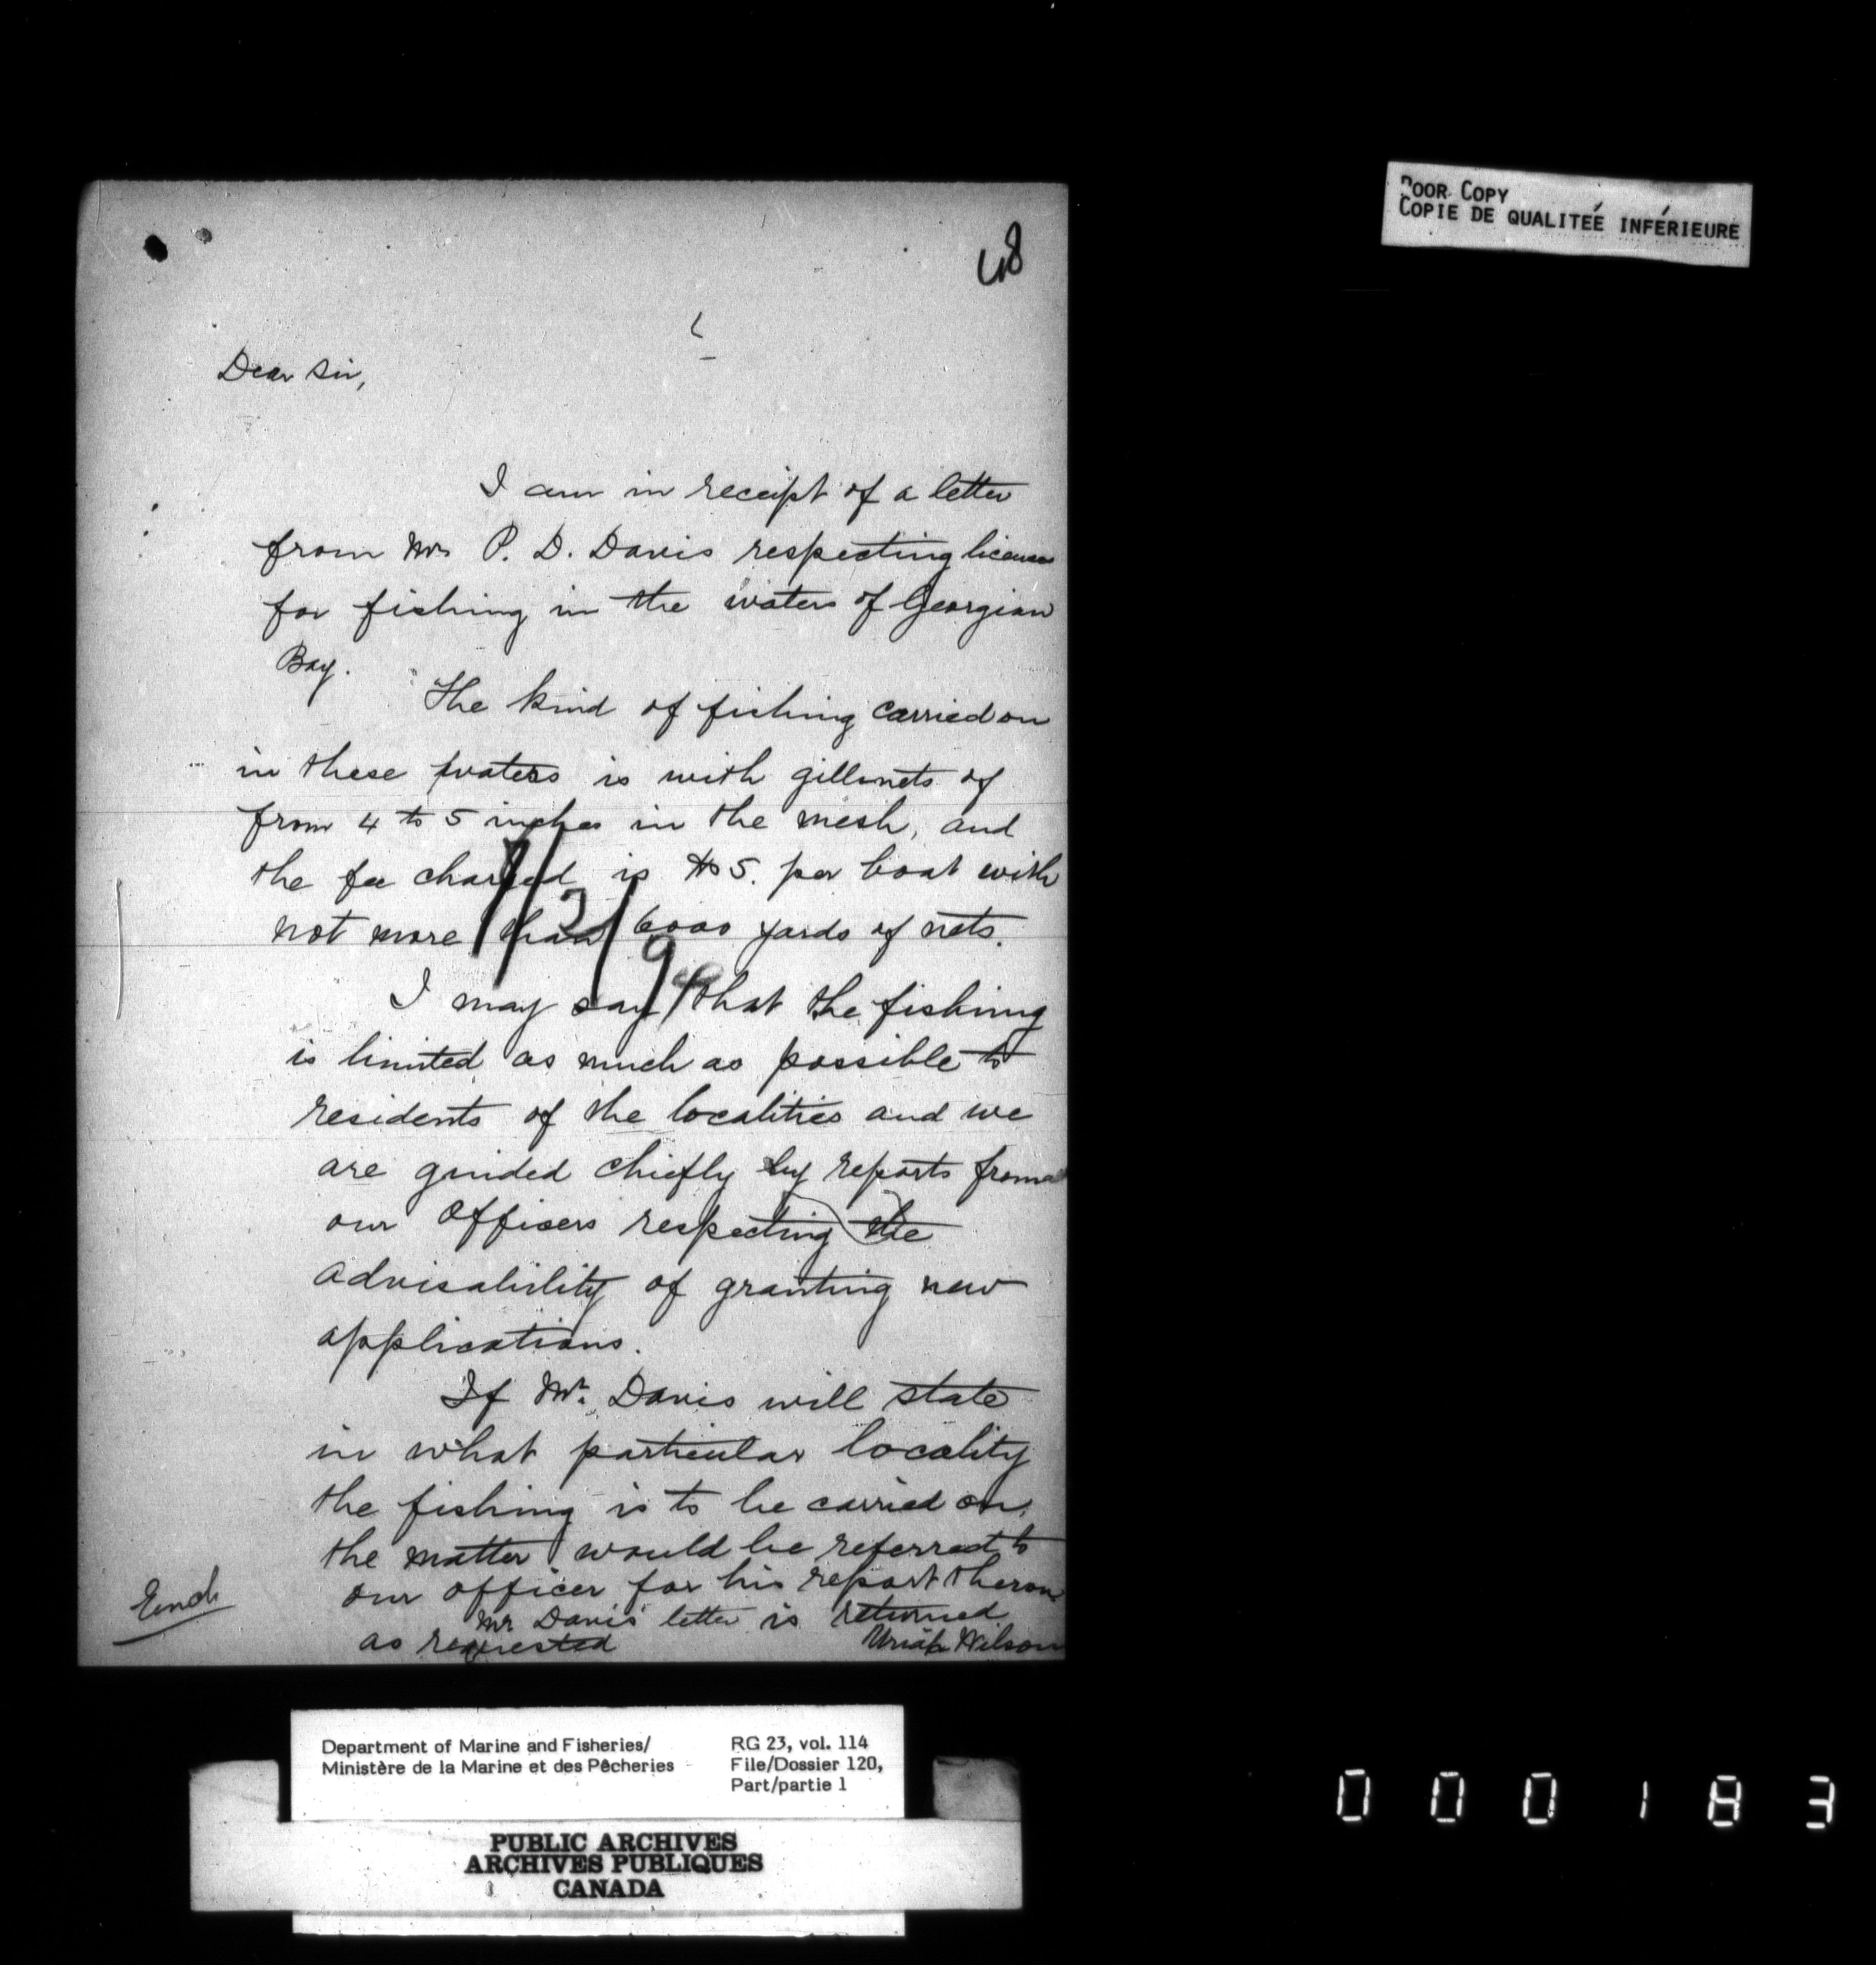 POOR COPY
COPIE DE QUALITEÉ INFÉRIEURE
48
Dear Sir,
I am in receipt of a letter
from Mr P. D. Davis respecting license
for fishing in the waters of Georgian
Bay.
The kind of fishing carried on
in these waters is with gillnets of
from 4 to 5 inches in the mesh, and
the fee charged is $5. per boat with
not more than 6000 yards of nets.
I may say that the fishing
is limited as much as possible to
residents of the localities and we
are guided chiefly by reports from
our Officers respecting the
advisability of granting new
applications.
If Mr. Davis will state
in what particular locality
the fishing is to be carried on,
the matter would be referred to
our officer for his report thereon
Mr Davis' letter is returned
as requested
Uriah Wilson
Encl
Department of Marine and Fisheries/
Ministère de la Marine et des Pêcheries
RG 23, vol. 114
File/Dossier 120,
Part/partie 1
PUBLIC ARCHIVES
ARCHIVES PUBLIQUES
CANADA
000183